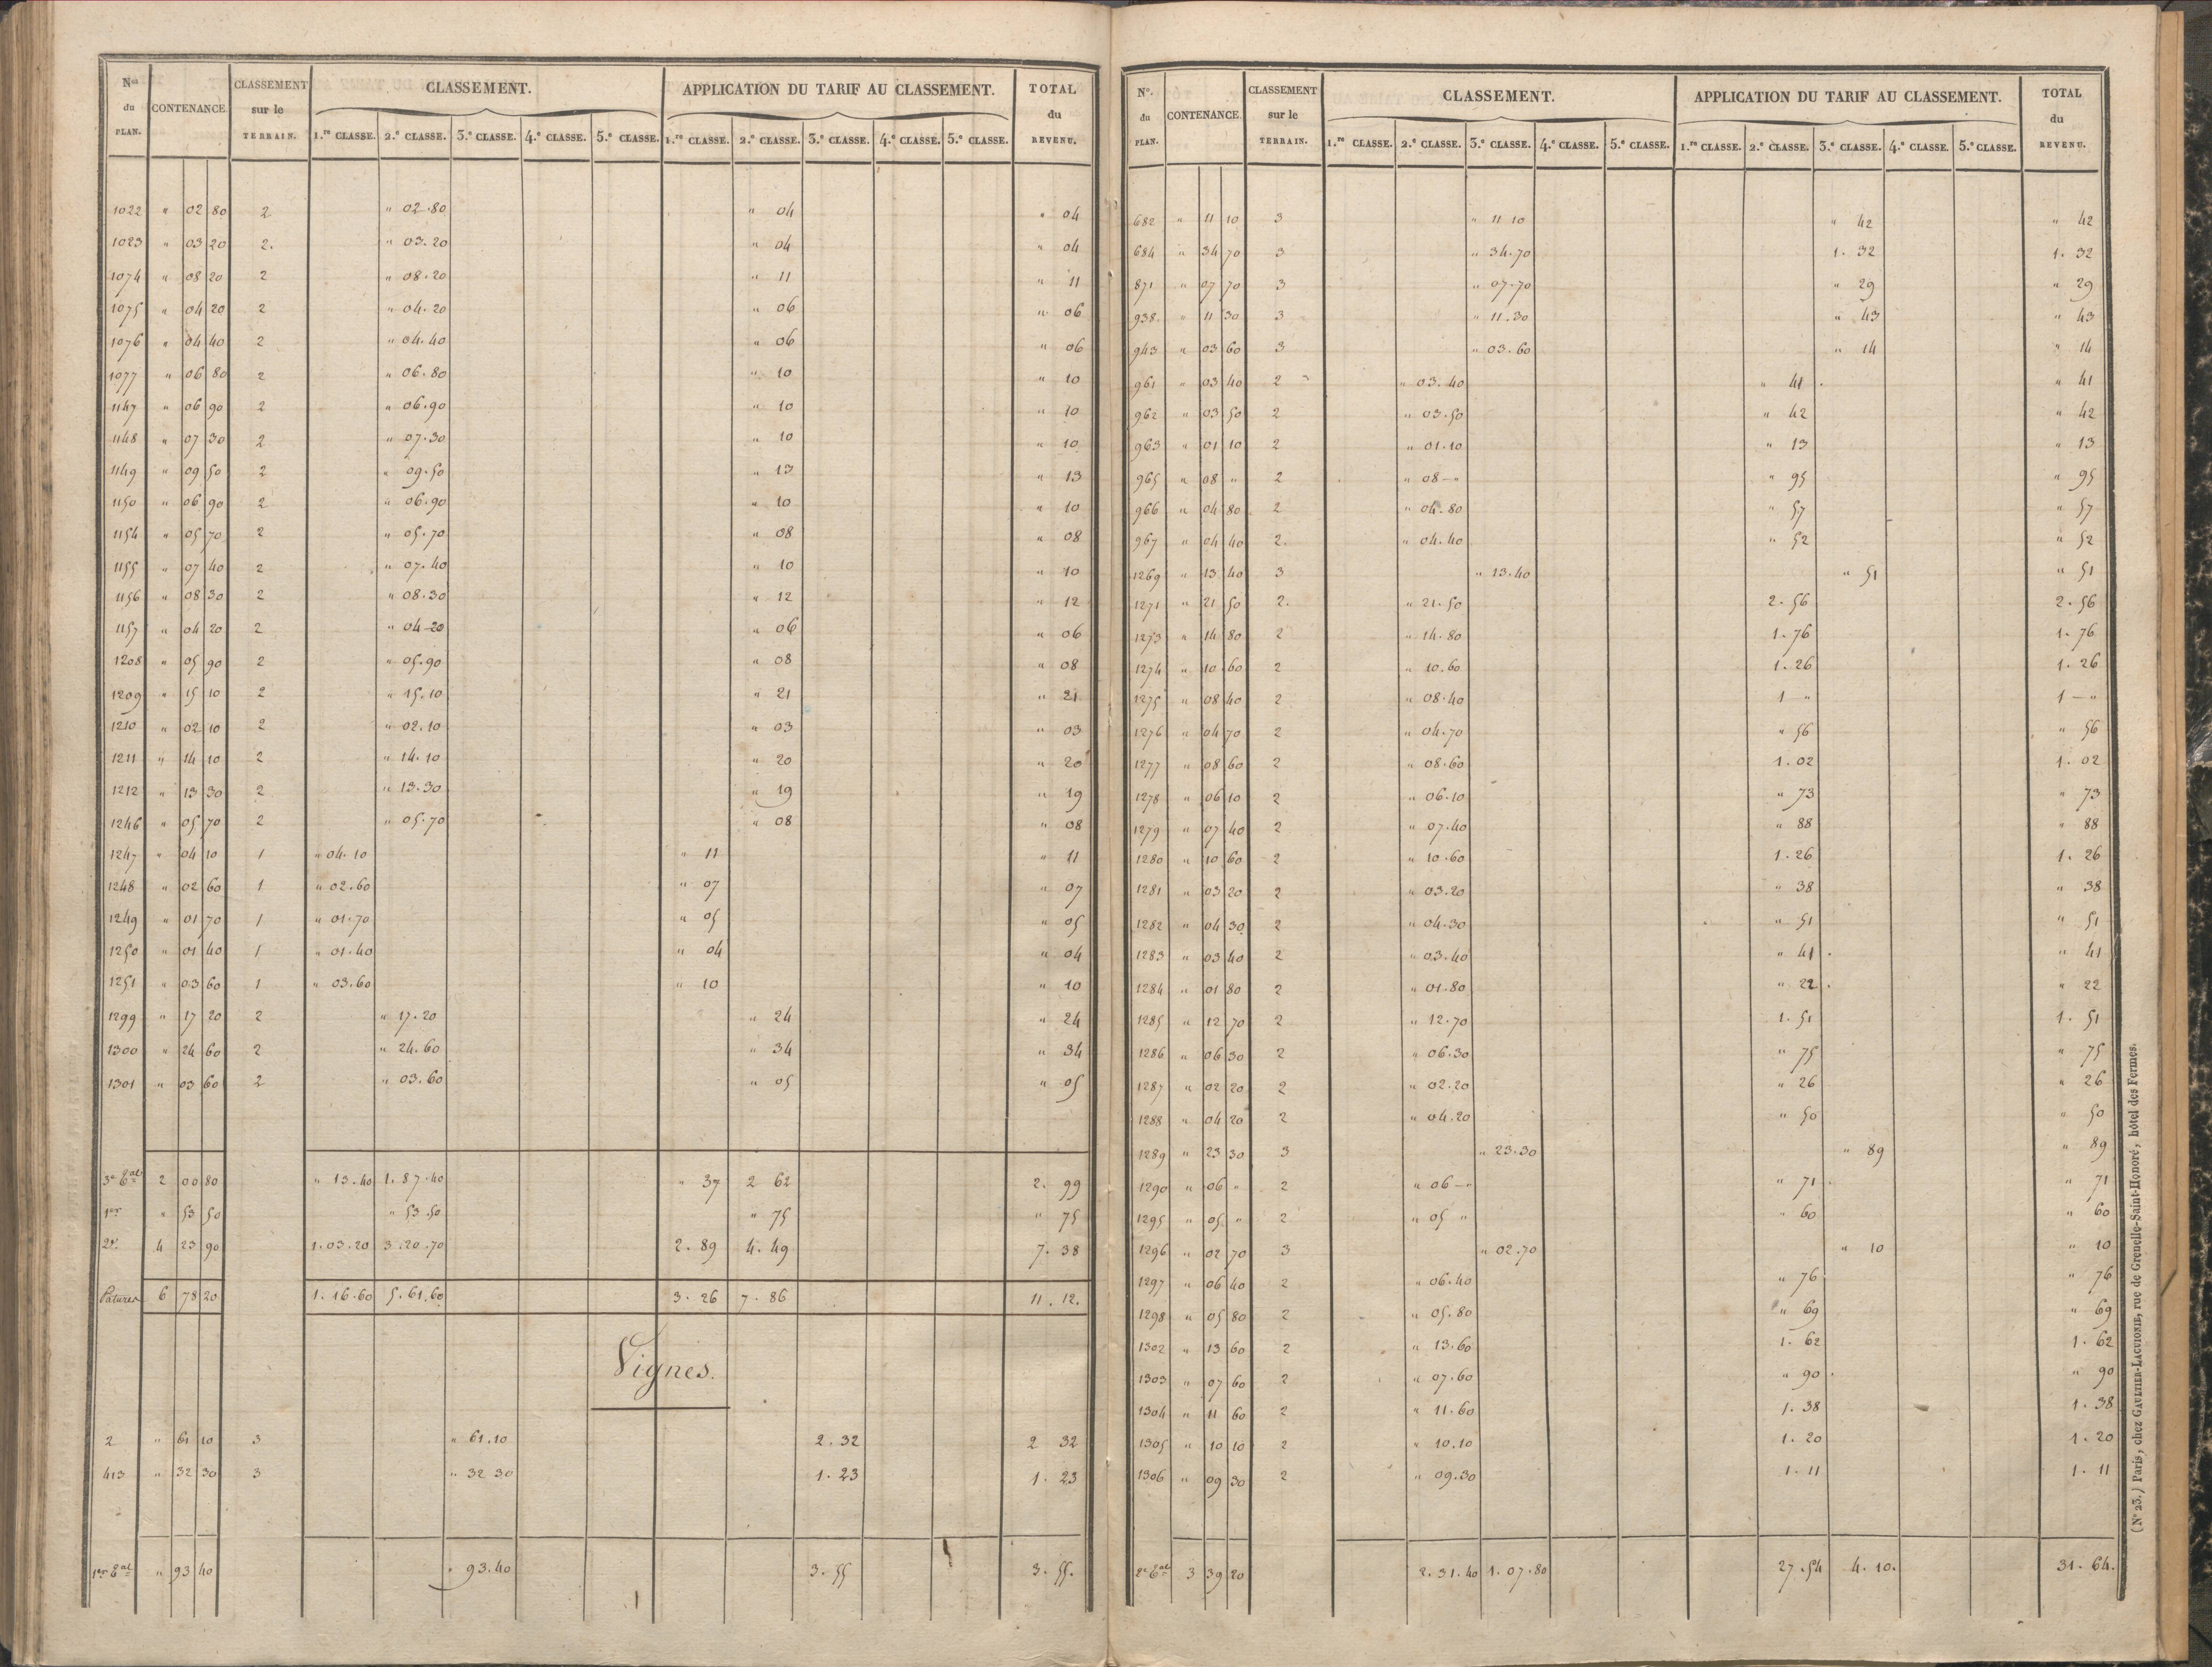 Nos du PLAN. CONTENANCE. CLASSEMENT sur le TERRAIN. CLASSEMENT. APPLICATION DU TARIF AU CLASSEMENT. TOTAL du REVENU.
1.re CLASSE. 2.e CLASSE. 3.e CLASSE. 4.e CLASSE. 5.e CLASSE. 1.re CLASSE. 2.e CLASSE. 3.e CLASSE. 4.e CLASSE. 5.e CLASSE.
1022 " 02 80 2 " 02.80 " 04 " 04
1023 " 03 20 2. " 03.20 " 04 " 04
1074 " 08 20 2 " 08.20 " 11 " 11
1075 " 04 20 2 " 04.20 " 06 " 06
1076 " 04 40 2 " 04.40 " 06 " 06
1077 " 06 80 2 " 06.80 " 10 " 10
1147 " 06 90 2 " 06.90 " 10 " 10
1148 " 07 30 2 " 07.30 " 10 " 10
1149 " 09 50 2 " 09.50 " 13 " 13
1150 " 06 90 2 " 06.90 " 10 " 10
1154 " 05 70 2 " 05.70 " 08 " 08
1155 " 07 40 2 " 07.40 " 10 " 10
1156 " 08 30 2 " 08.30 " 12 " 12
1157 " 04 20 2 " 04-20 " 06 " 06
1208 " 05 90 2 " 05.90 " 08 " 08
1209 " 15 10 2 " 15.10 " 21 " 21
1210 " 02 10 2 " 02.10 " 03 " 03
1211 " 14 10 2 " 14.10 " 20 " 20
1212 " 13 30 2 " 13.30 " 19 " 19
1246 " 05 70 2 " 05.70 " 08 " 08
1247 " 04 10 1 " 04.10 " 11 " 11
1248 " 02 60 1 " 02.60 " 07 " 07
1249 " 01 70 1 " 01.70 " 05 " 05
1250 " 01 40 1 " 01.40 " 04 " 04
1251 " 03 60 1 " 03.60 " 10 " 10
1299 " 17 20 2 " 17.20 " 24 " 24
1300 " 24 60 2 " 24.60 " 34 " 34
1301 " 03 60 2 " 03.60 " 05 " 05
3e tal 2 00 80 " 13.40 1.87.40 " 37 2 62 2. 99
1er " 53 50 " 53.50 " 75 " 75
2e. 4 23 90 1.03.20 3.20.70 2.89 4.49 7.38
Patures 6 78 20 1.16.60 5.61.60 3.26 7.86 11.12.
Vignes.
2 " 61 10 3 " 61.10 2.32 2 32
413 " 32 30 3 " 32 30 1.23 1.23
1er tal " 93 40 " 93.40 3.55 3.55.
No. du PLAN. CONTENANCE. CLASSEMENT sur le TERRAIN. CLASSEMENT. APPLICATION DU TARIF AU CLASSEMENT. TOTAL du REVENU.
1.re CLASSE. 2.e CLASSE. 3.e CLASSE. 4.e CLASSE. 5.e CLASSE. 1.re CLASSE. 2.e CLASSE. 3.e CLASSE. 4.e CLASSE. 5.e CLASSE.
682 " 11 10 3 " 11 10 " 42 " 42
684 " 34 70 3 " 34.70 1.32 1.32
871 " 07 70 3 " 07.70 " 29 " 29
938. " 11 30 3 " 11.30 " 43 " 43
943 " 03 60 3 " 03.60 " 14 " 14
961 " 03 40 2 " 03.40 " 41 " 41
962 " 03 50 2 " 03.50 " 42 " 42
963 " 01 10 2 " 01.10 " 13 " 13
965 " 08 " 2 " 08-" " 95 " 95
966 " 04 80 2 " 04.80 " 57 " 57
967 " 04 40 2. " 04.40 " 52 " 52
1269 " 13 40 3 " 13.40 " 51 " 51
1271 " 21 50 2. " 21.50 2.56 2.56
1273 " 14 80 2 " 14.80 1.76 1.76
1274 " 10 60 2 " 10.60 1.26 1.26
1275 " 08 40 2 " 08.40 1 - " 1 - "
1276 " 04 70 2 " 04.70 " 56 " 56
1277 " 08 60 2 " 08.60 1.02 1.02
1278 " 06 10 2 " 06.10 " 73 " 73
1279 " 07 40 2 " 07.40 " 88 " 88
1280 " 10 60 2 " 10.60 1.26 1.26
1281 " 03 20 2 " 03.20 " 38 " 38
1282 " 04 30 2 " 04.30 " 51 " 51
1283 " 03 40 2 " 03.40 " 41 " 41
1284 " 01 80 2 " 01.80 " 22 " 22
1285 " 12 70 2 " 12.70 1.51 1.51
1286 " 06 30 2 " 06.30 " 75 " 75
1287 " 02 20 2 " 02.20 " 26 " 26
1288 " 04 20 2 " 04.20 " 50 " 50
1289 " 23 30 3 " 23.30 " 89 " 89
1290 " 06 " 2 " 06-" " 71 " 71
1295 " 05 " 2 " 05 " " 60 " 60
1296 " 02 70 3 " 02.70 " 10 " 10
1297 " 06 40 2 " 06.40 " 76 " 76
1298 " 05 80 2 " 05.80 " 69 " 69
1302 " 13 60 2 " 13.60 1.62 1.62
1303 " 07 60 2 " 07.60 " 90 " 90
1304 " 11 60 2 " 11.60 1.38 1.38
1305 " 10 10 2 " 10.10 1.20 1.20
1306 " 09 30 2 " 09.30 1.11 1.11
2e tal 3 39 20 2.31.40 1.07.80 27.54 4.10. 31.64.
(No 23.) Paris, chez GAULTIER-LAGUIONIE, rue de Grenelle-Saint-Honoré, hôtel des Fermes.